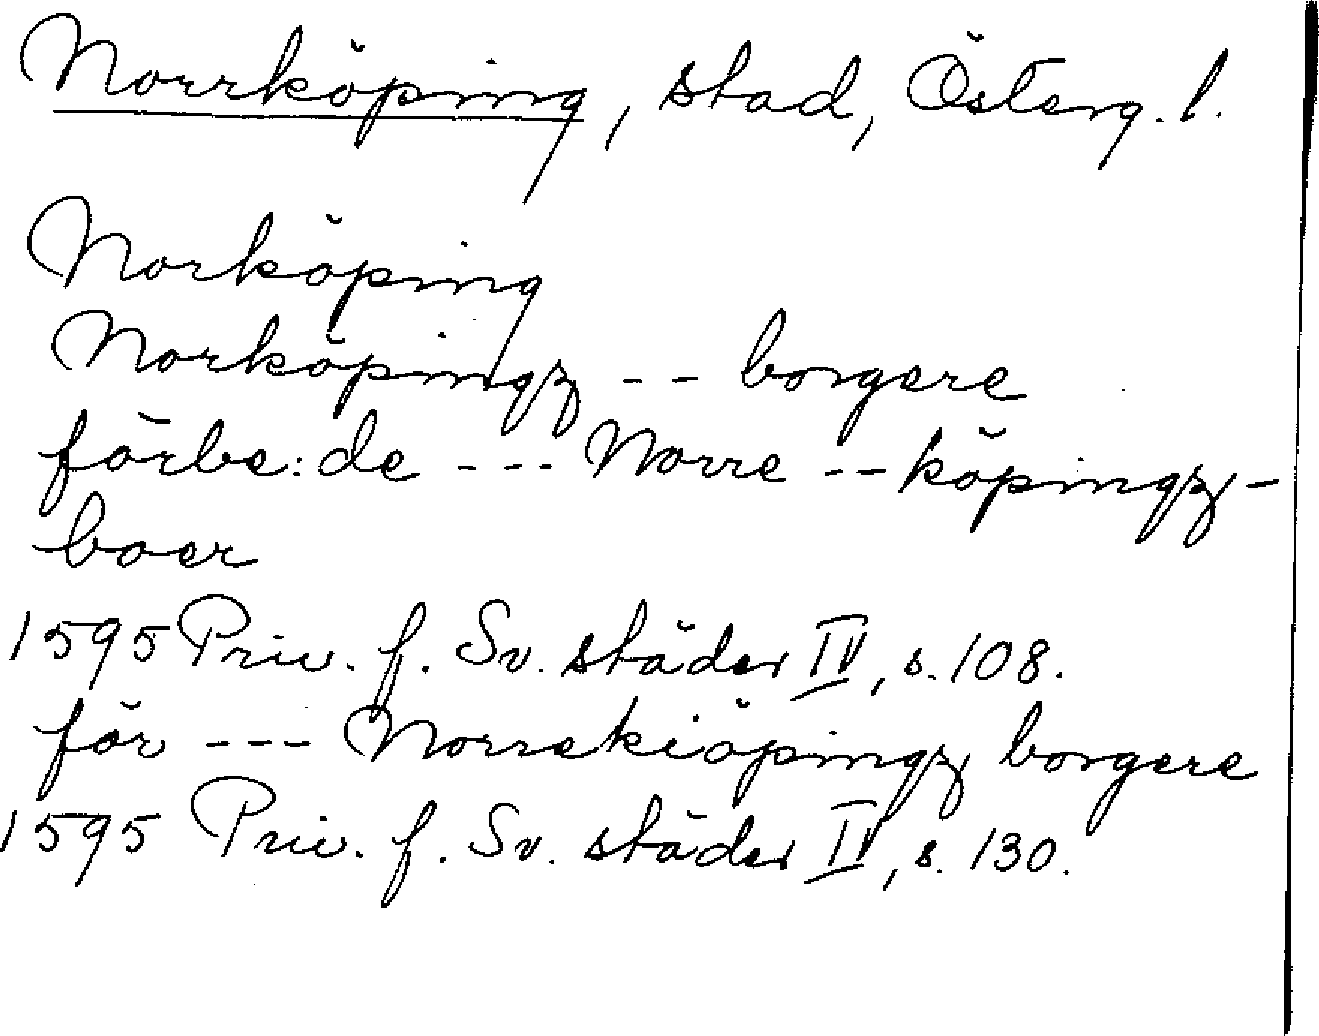 Norrköping, stad, Österg. l.
Norköping
Norköpingz -- borgere
förbe:de --- Norre -- köpingz-
boer
1595 Priv. f. Sv. städer IV, s. 108.
för --- Norrekiöpingz borgere
1595 Priv. f. Sv. städer IV, s. 130.